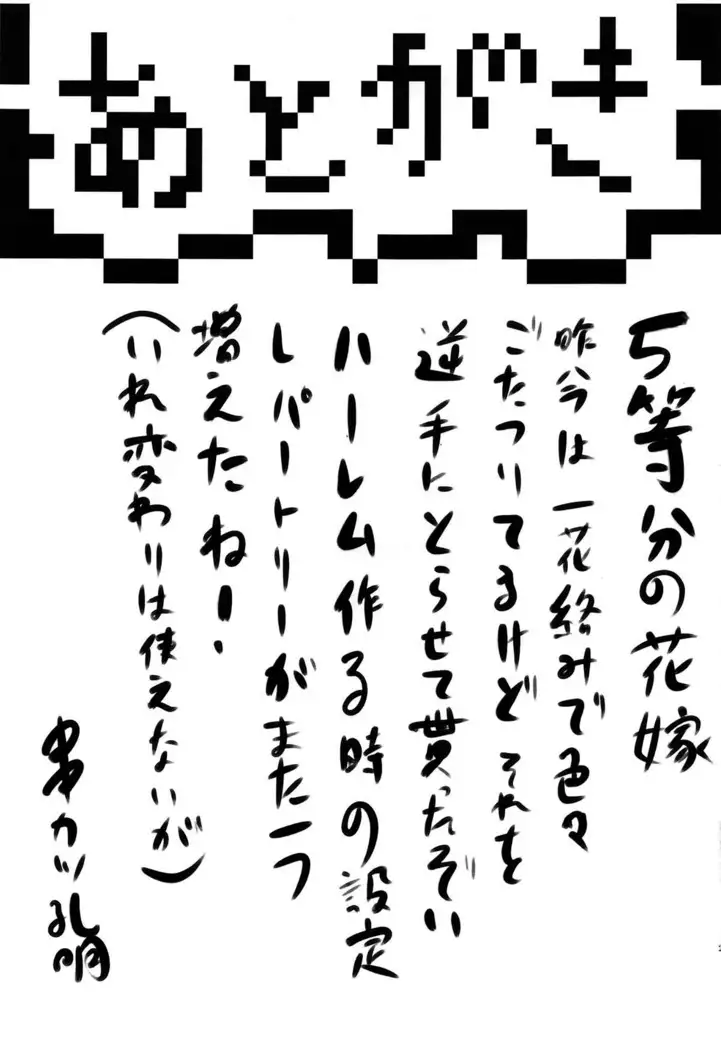 あとがき
5等分の花嫁
昨今は一花絡みで色々
ごたついてるけどそれを
逆手にとらせて貰ったぞい
ハーレム作る時の設定
レパートリーがまた一つ
増えたね!
(いれ変わりは使えないが)
串カツ孔明